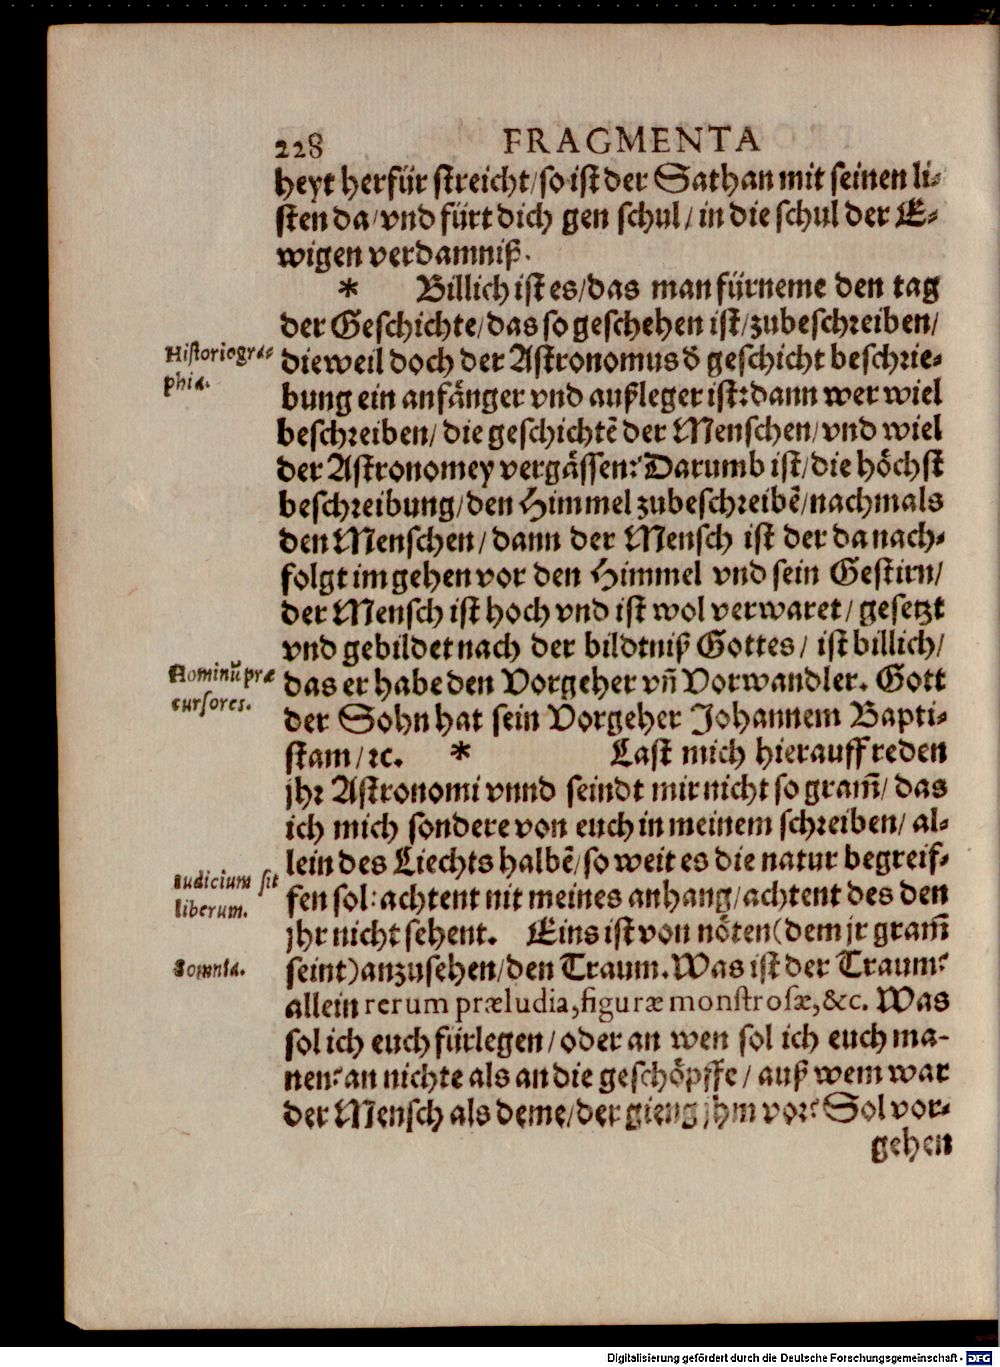 228 FRAGMENTA
heyt herfür streicht/so ist der Sathan mit seinen li⸗
sten da/vnd fürt dich gen schul/in die schul der E⸗
wigen verdamniß.
* Billich ist es/das man fürneme den tag
der Geschichte/das so geschehen ist/zubeschreiben/
Historiogra⸗
phia.
dieweil doch der Astronomus d̄ geschicht beschrie⸗
bung ein anfänger vnd außleger ist: dann wer wiel
beschreiben/die geschichtē der Menschen/vnd wiel
der Astronomey vergässen? Darumb ist/die höchst
beschreibung/den Himmel zubeschreibē/nachmals
den Menschen/dann der Mensch ist der da nach⸗
folgt im gehen vor den Himmel vnd sein Gestirn/
der Mensch ist hoch vnd ist wol verwaret/gesetzt
vnd gebildet nach der bildtniß Gottes/ist billich/
Nominū præ
cursores.
das er habe den Vorgeher vñ Vorwandler. Gott
der Sohn hat sein Vorgeher Johannem Bapti⸗
stam/ꝛc. * Last mich hierauff reden
jhr Astronomi vnnd seindt mir nicht so gram̄/das
ich mich sondere von euch in meinem schreiben/al⸗
lein des Liechts halbē/so weit es die natur begreif⸗
Iudicium sit
liberum.
fen sol: achtent nit meines anhang/achtent des den
jhr nicht sehent. Eins ist von nöten (dem jr gram̄
Somnia.
seint) anzusehen/den Traum. Was ist der Traum?
allein rerum præludia, figuræ monstrosæ, &c. Was
sol ich euch fürlegen/oder an wen sol ich euch ma-
nen? an nichte als an die geschöpffe/auß wem war
der Mensch als deme/der gieng jhm vor? Sol vor⸗
gehen
Digitalisierung gefördert durch die Deutsche Forschungsgemeinschaft - DFG